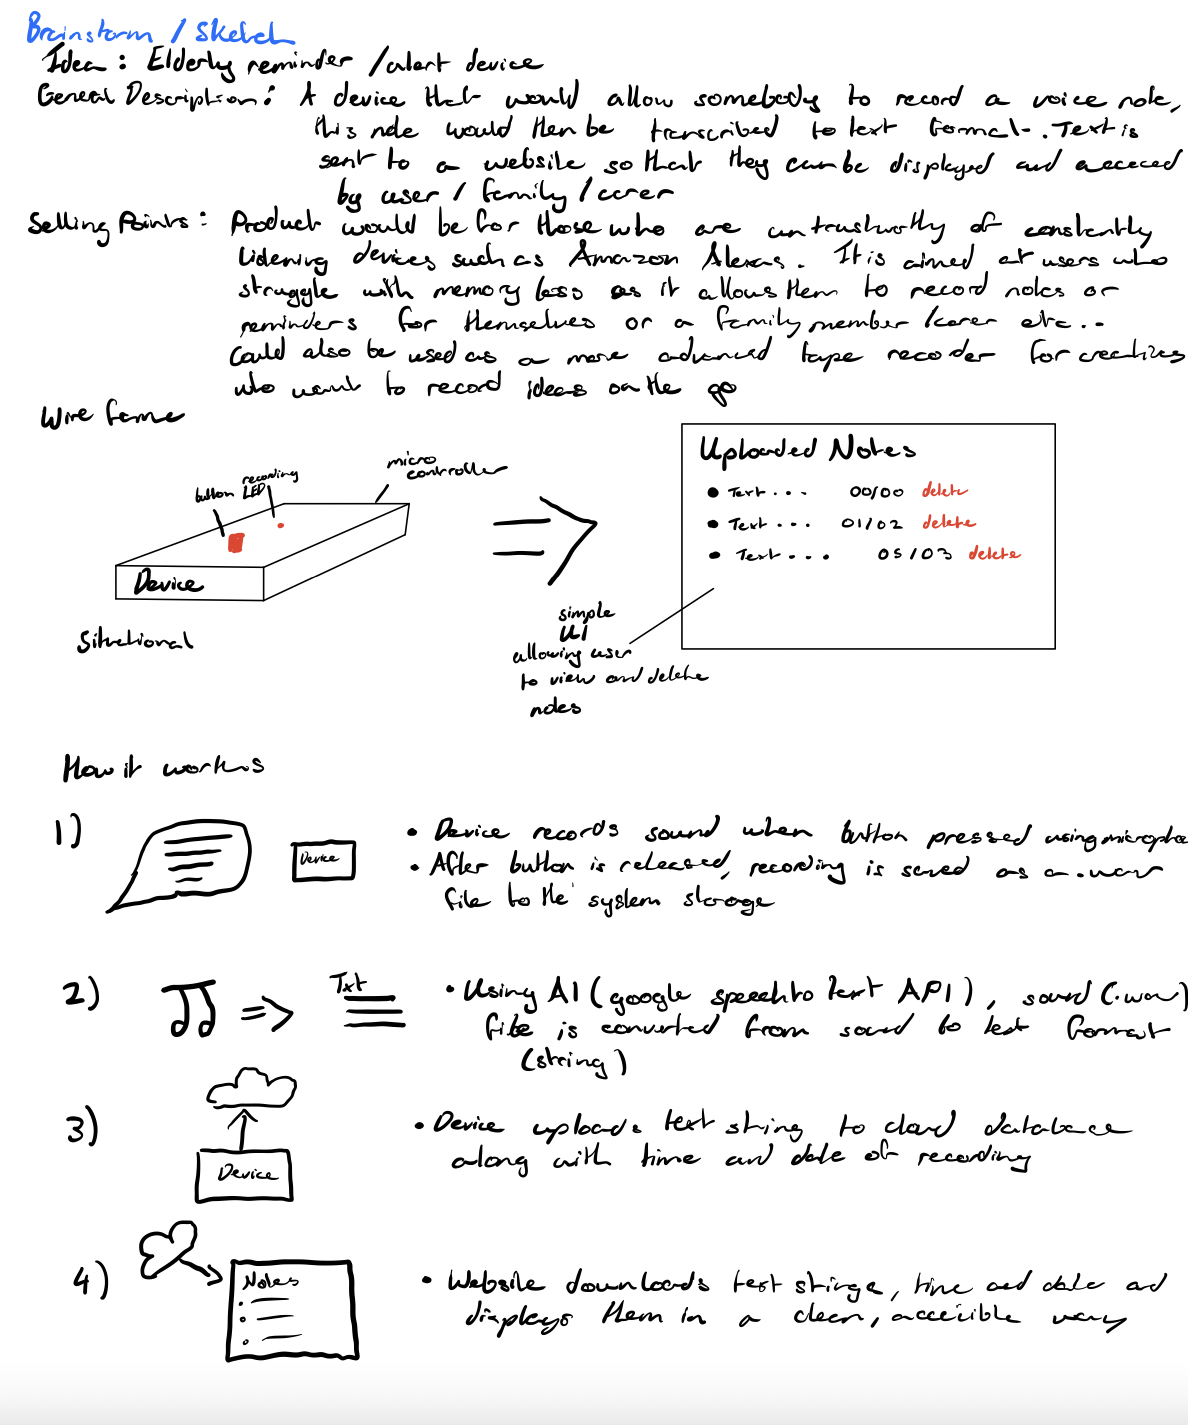 Brainstorm / Sketch
Idea : Elderly reminder / alert device
General Description : A device that would allow somebody to record a voice note,
this note would then be transcribed to text format. Text is
sent to a website so that they can be displayed and acceced
by user / family / carer
Selling Points : Product would be for those who are untrustworthy of constantly
listening devices such as Amazon Alexas. It is aimed at users who
struggle with memory loss as it allows them to record notes or
reminders for themselves or a family member / carer etc..
Could also be used as a more advanced tape recorder for creatives
who want to record ideas on the go
Wire frame
button
recording
LED
micro
controller
Device
Situational
Uploaded Notes
• Text ... 00/00 delete
• Text ... 01/02 delete
• Text .... 05/03 delete
simple
UI
allowing user
to view and delete
notes
How it works
1)
Device
• Device records sound when button pressed using
• After button is released, recording is saved as a .wav
file to the system storage
2)
Txt
• Using AI (google speech to text API), sound (.wav)
file is converted from sound to text format
(string)
3)
Device
• Device uploads text string to cloud database
along with time and date of recording
4)
Notes
• Website downloads text strings, time and date and
displays them in a clean, accecible way